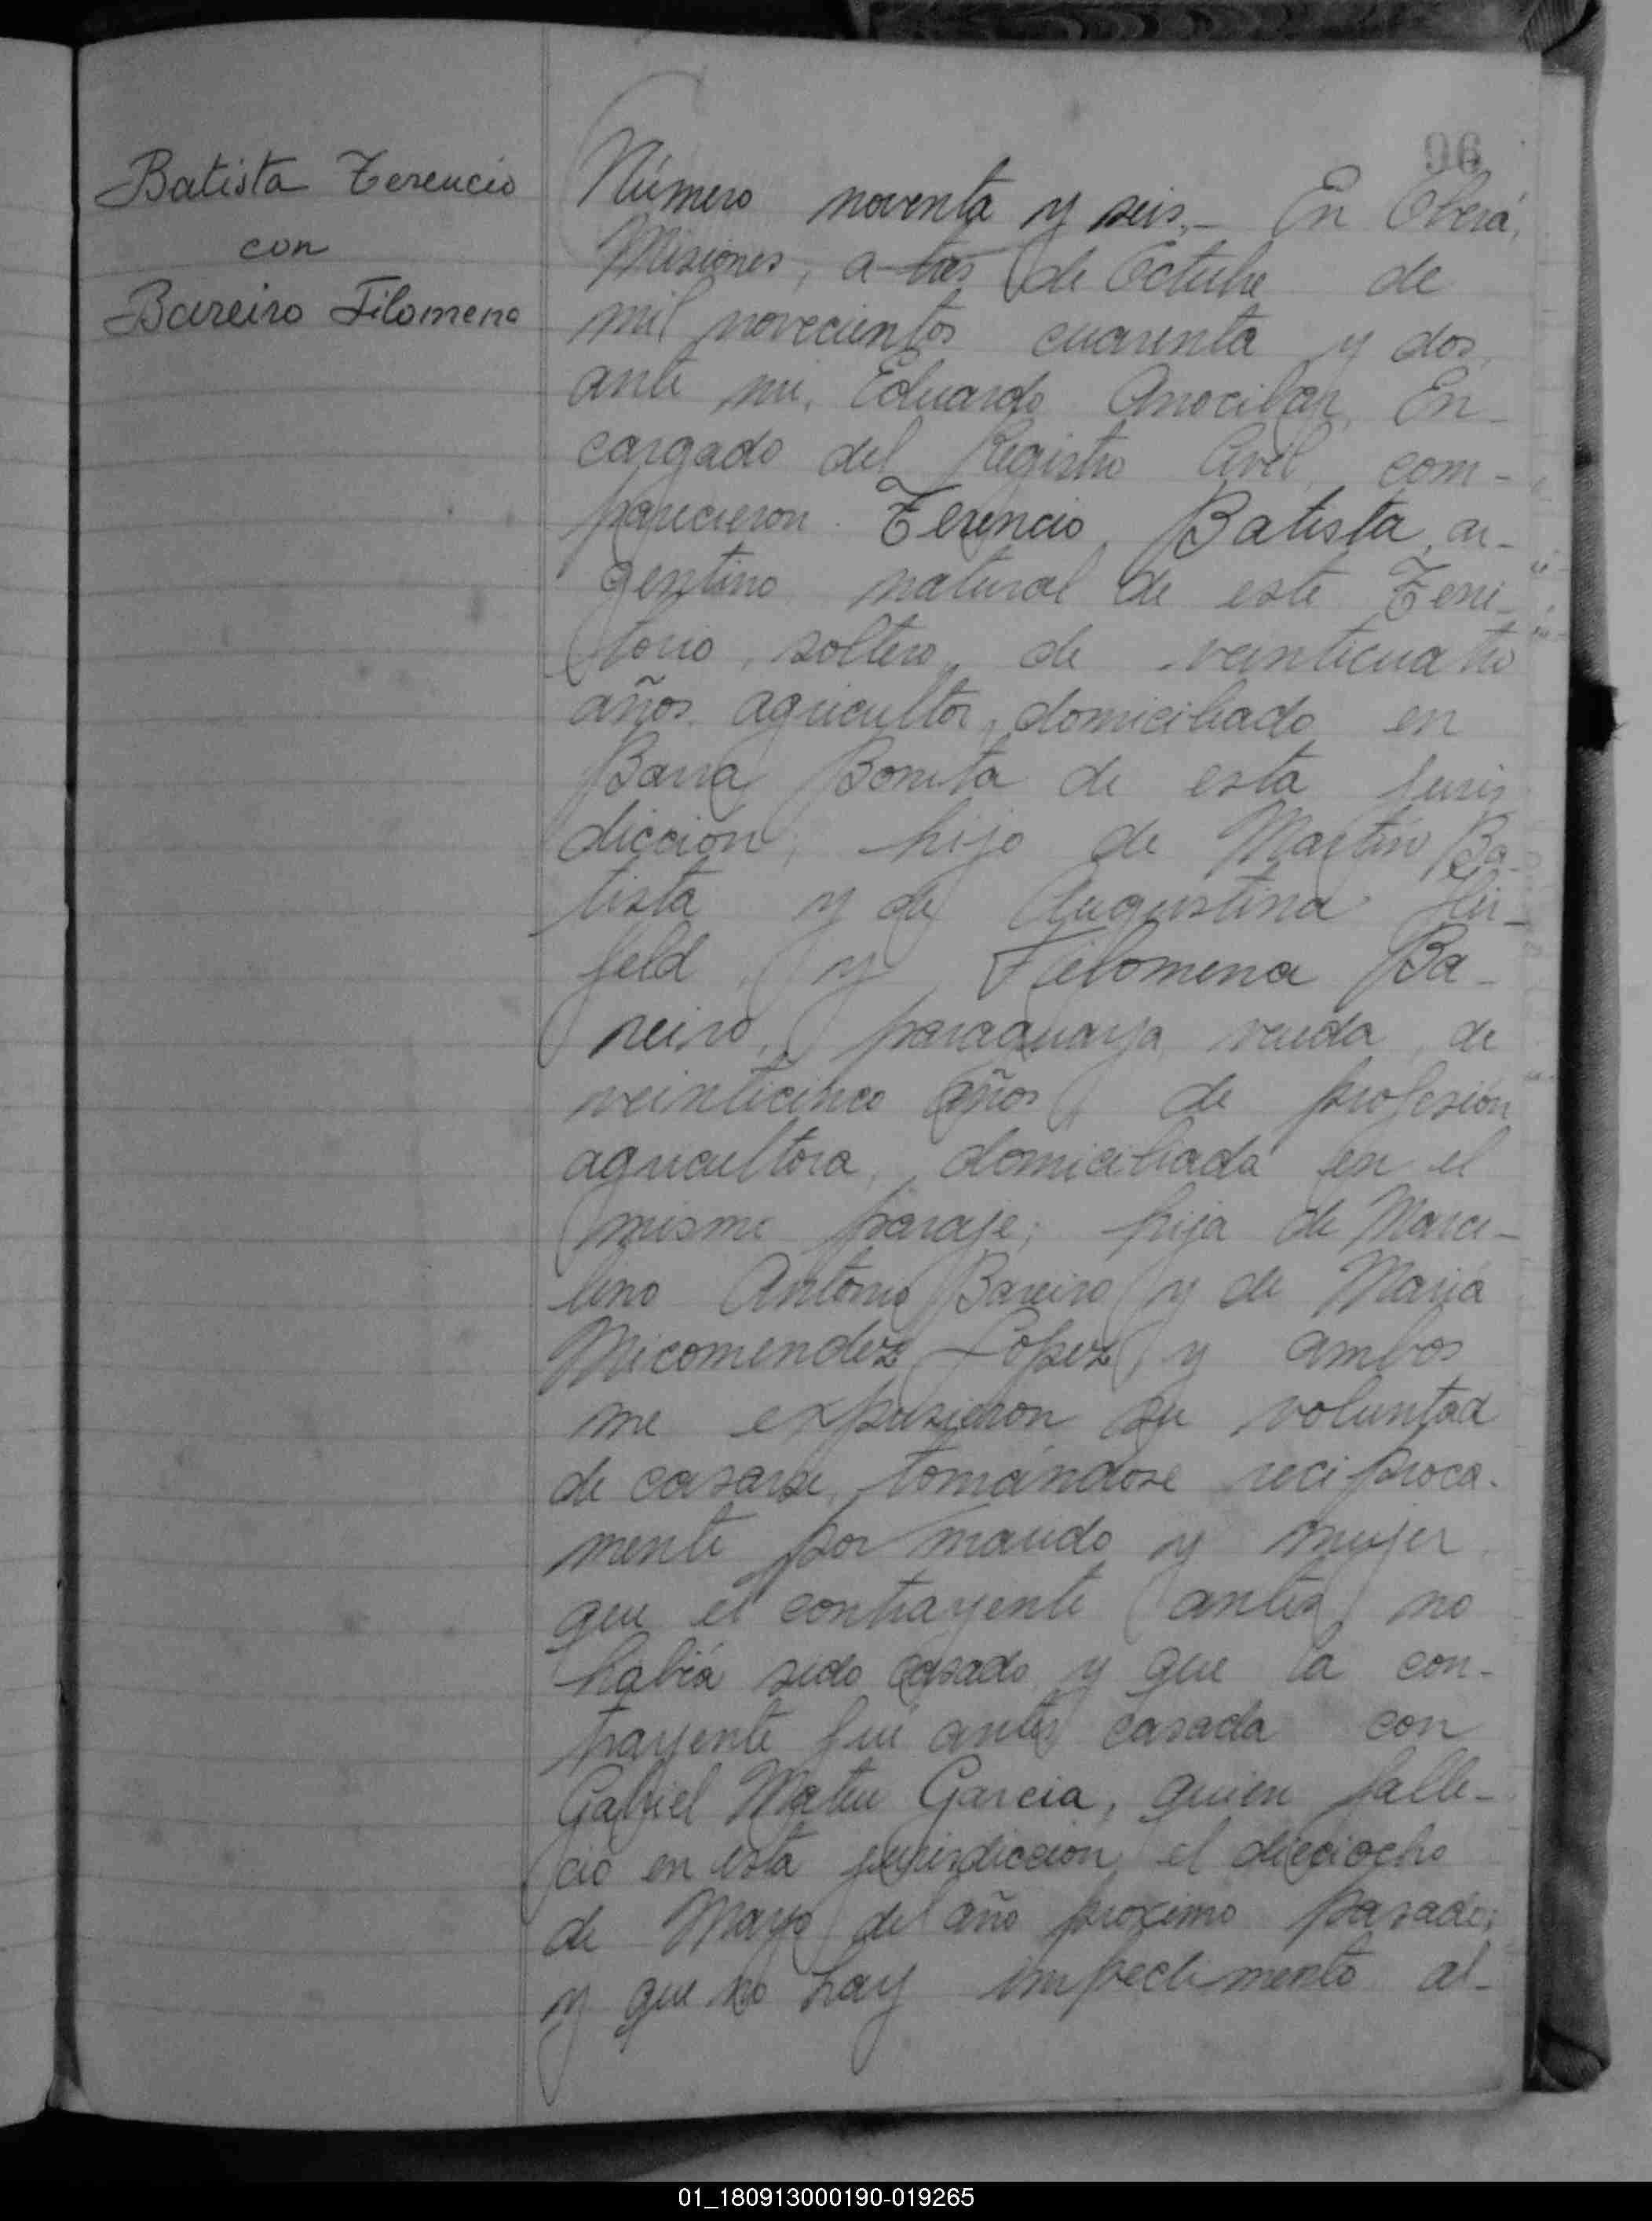 96
Batista Terencio
con
Bareiro Filomena
Número noventa y seis.- En Oberá,
Misiones, a tres de Octubre de
mil novecientos cuarenta y dos,
ante mi, Eduardo Anocibar, En-
cargado del Registro Civil, com-
parecieron Terencio Batista, ar-
gentino natural de este Terri-
torio, soltero, de veinticuatro
años agricultor, domiciliado en
Barra Bonita de esta juris
dicción, hijo de Martín Ba-
tista y de Augustina
feld, y Filomena Ba-
reiro, paraguaya, viuda, de
veinticinco años, de profesión
agricultora, domiciliada en el
mismo paraje; hija de Marce-
lino Antonio Bareiro y de María
Micomendez López, y ambos
me expusieron su voluntad
de casarse, tomándose recíproca-
mente por marido y mujer
que el contrayente antes no
había sido casado y que la con-
trayente fué antes casada con
Gabriel Mateu Garcia, quien falle-
ció en esta jurisdicción el dieciocho
de Mayo del año próximo pasado;
y que no hay impedimento al-
01_180913000190-019265